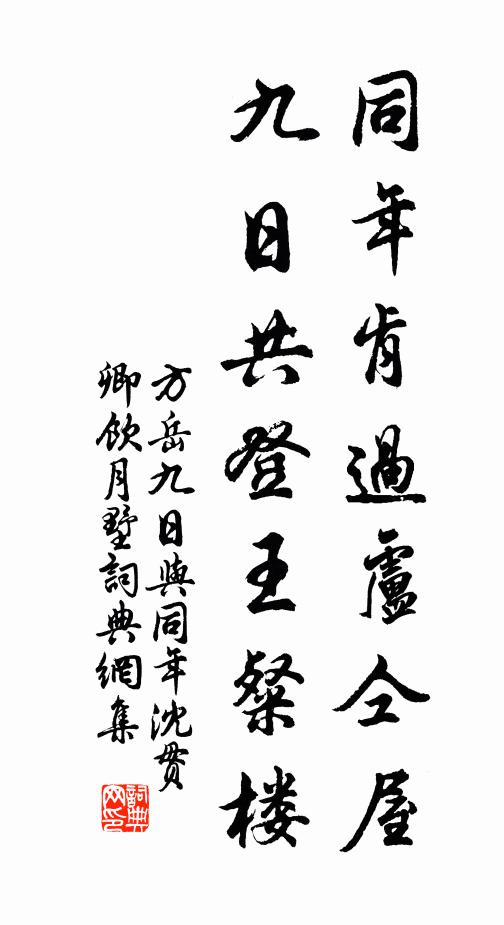 同年肯過盧仝屋
九日共登王粲楼
方岳九日與同年沈貫
卿飲月墅詞典網集
詞典网印